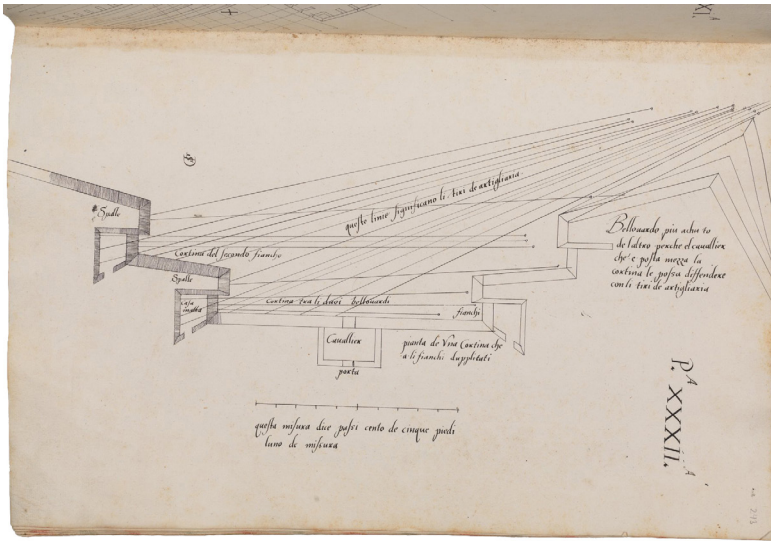 XI.A
queste linie significano li tiri de artigliaria
Spalle
Cortina del secondo fiancho
Spalle
casa
matta
cortina tra li dui bellouardi
fianchi
Cauallier
porta
pianta de Vna Cortina che
a li fianchi dupplicati
Bellouardo piu achuto
de laltro perche el cauallier
che e posta mezza la
cortina le possa diffendere
con li tiri de artigliaria
questa misura dice passi cento de cinque piedi
luno de missura
P.A XXXII.A